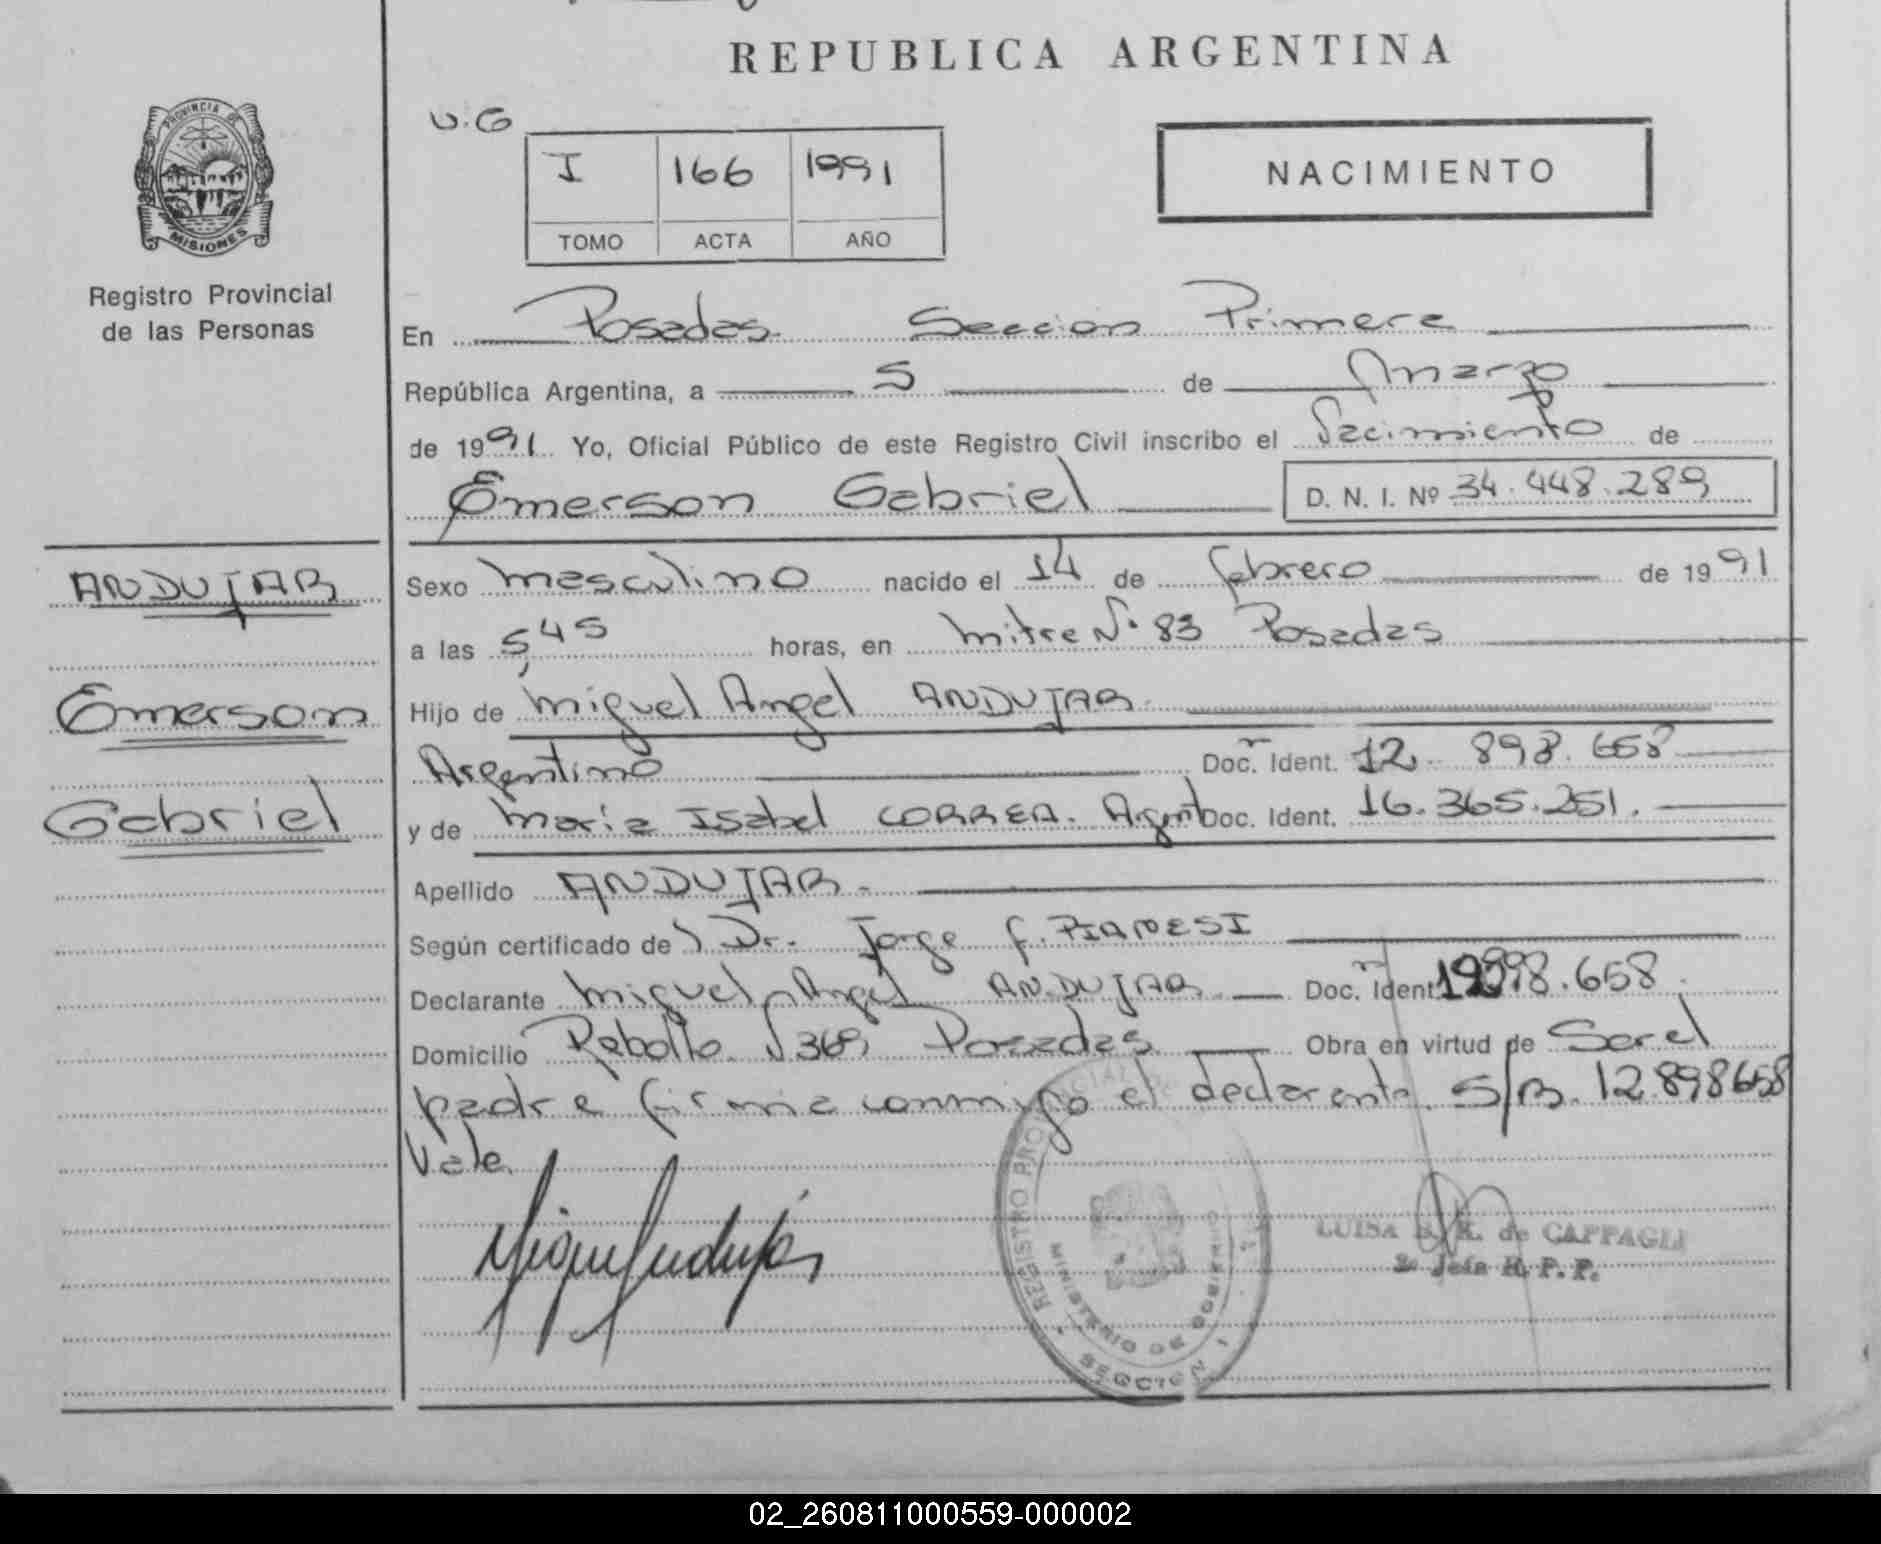 REPUBLICA ARGENTINA
PROVINCIA DE
MISIONES
Registro Provincial
de las Personas
U.G
I 166 1991
TOMO ACTA AÑO
NACIMIENTO
En Posadas. Seccion Primera
República Argentina, a 5 de Marzo
de 1991 Yo, Oficial Público de este Registro Civil inscribo el Nacimiento de
Emerson Gabriel D. N. I. Nº 34.448.289
ANDUJAR
Emerson
Gabriel
Sexo masculino nacido el 14 de febrero de 1991
a las 5,45 horas, en mitre Nº 83 Posadas
Hijo de Miguel Angel ANDUJAR.
Argentino Doc. Ident. 12. 898. 658
y de Maria Isabel CORREA. Argent Doc. Ident. 16.365.251.
Apellido ANDUJAR.
Según certificado de Dr. Jorge F.
Declarante Miguel Angel ANDUJAR Doc. Ident
Domicilio 369 Posadas Obra en virtud de Ser el
padre firma conmigo el declarante. S/B. 12.898658
Vale.
REGISTRO PROVINCIAL DE
MINISTERIO DE GOBIERNO
SECCION 1
LUISA de
2º Jefa R. P. P.
02_260811000559-000002